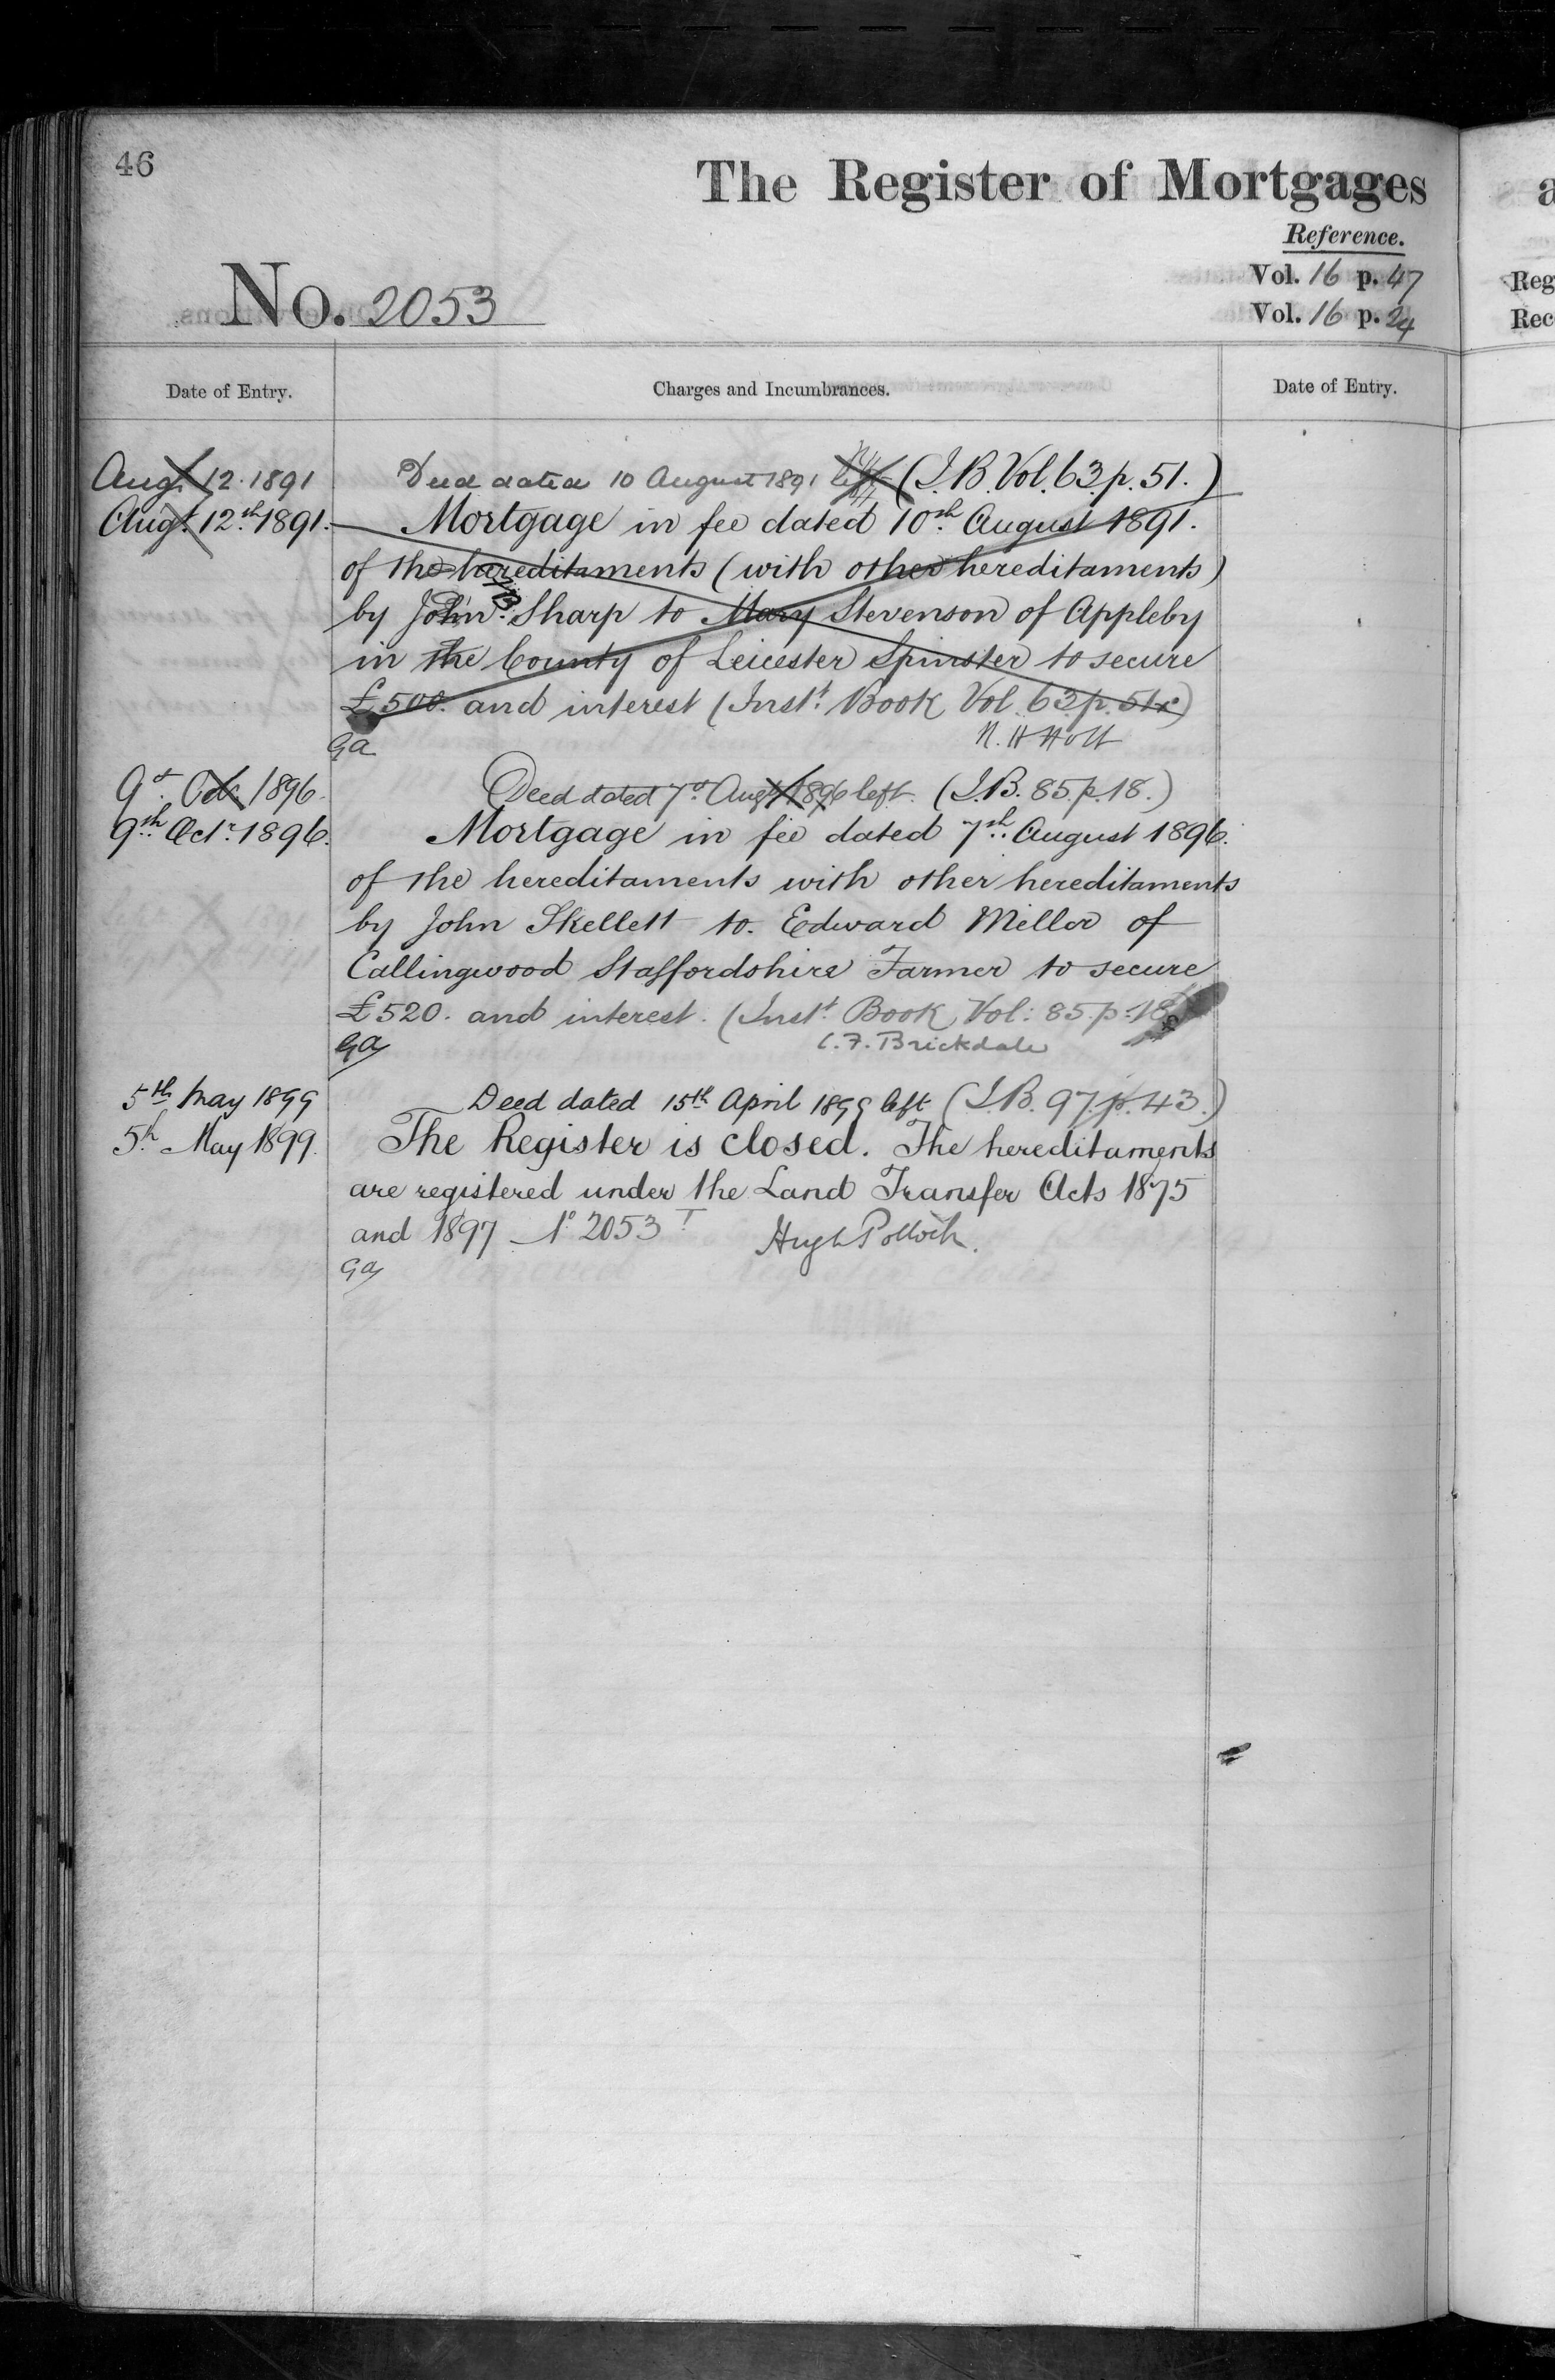 46
The Register of Mortgages
Reference.
Vol. 16 p. 47
No. 2053
Vol. 16 p. 24
Date of Entry. Charges and Incumbrances. Date of Entry.
Aug. 12. 1891 Deed dated 10 August 1891 left (I.B. Vol. 63. p. 51.)
Augt. 12th 1891. Mortgage in fee dated 10th August 1891.
of the hereditaments (with other hereditaments)
by John Sharp to Mary Stevenson of Appleby
in the County of Leicester Spinster to secure
£500. and interest (Inst. Book Vol. 63. p. 51.)
N. H Holt
Ga
9th Oct. 1896. Deed dated 7th Augt 1896 left. (I.B. 85. p. 18.)
9th Octr. 1896. Mortgage in fee dated 7th August 1896.
of the hereditaments with other hereditaments
by John Skellett to Edward Mellor of
Callingwood Staffordshire Farmer to secure
£520. and interest. (Inst. Book Vol: 85. p: 18
Ga C. F. Brickdale
5th May 1899 Deed dated 15th April 1899 left (I.B. 97. p. 43.)
5th May 1899. The Register is closed. The hereditaments
are registered under the Land Transfer Acts 1875
and 1897 No 2053 T Hugh Pollock.
Ga
Reg
Rec